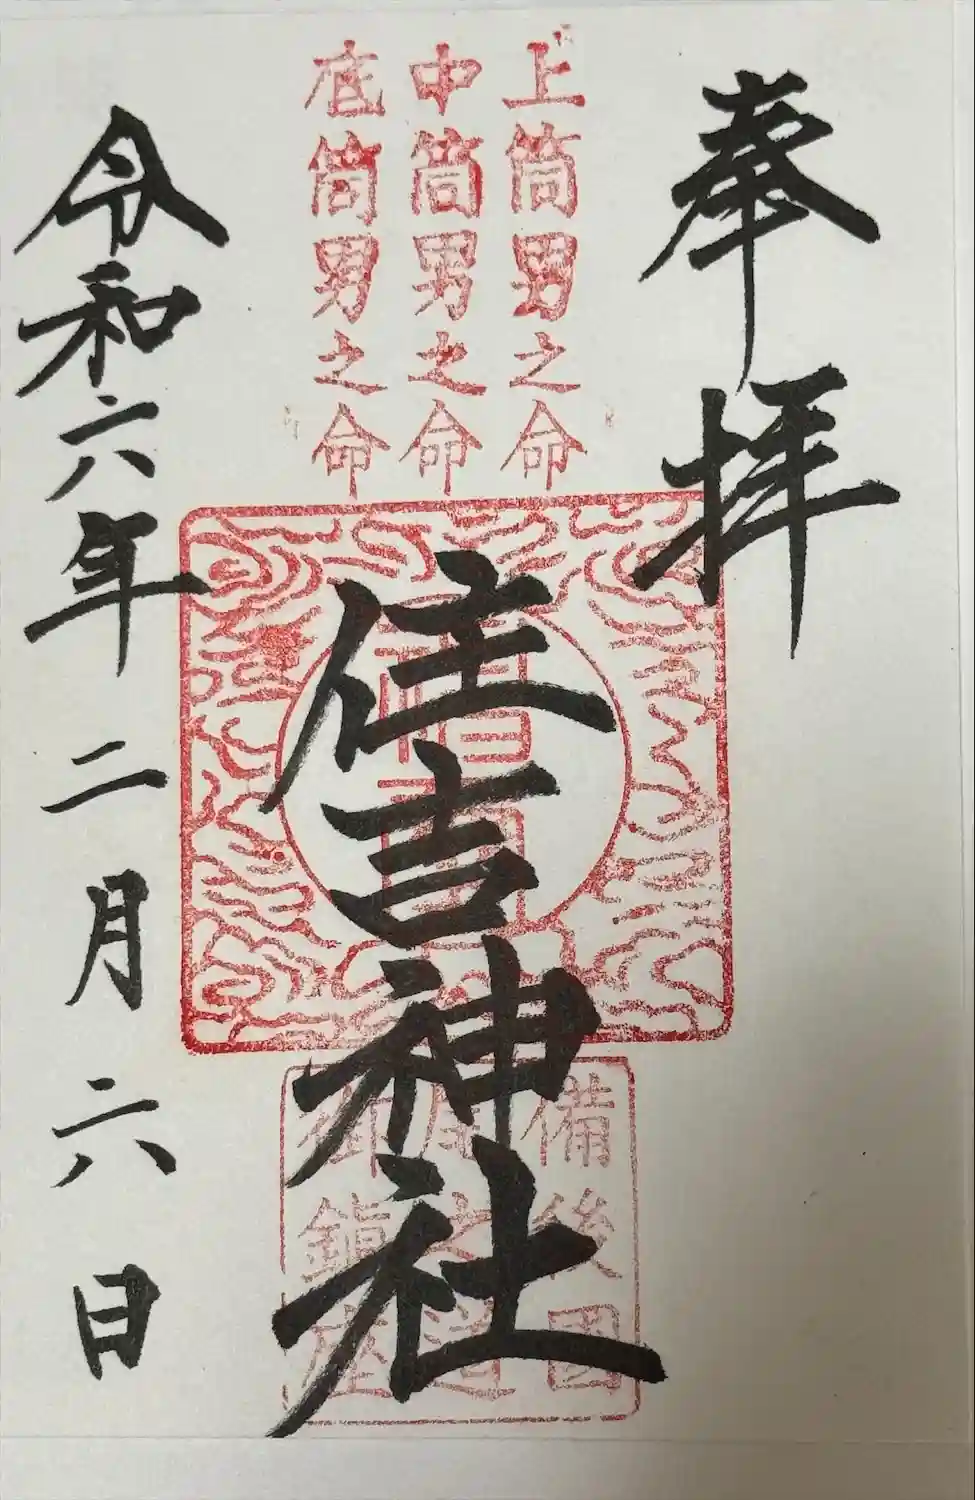 奉拝
上筒男之命
中筒男之命
底筒男之命
住吉神社
備後国
御鎮座
令和六年二月六日